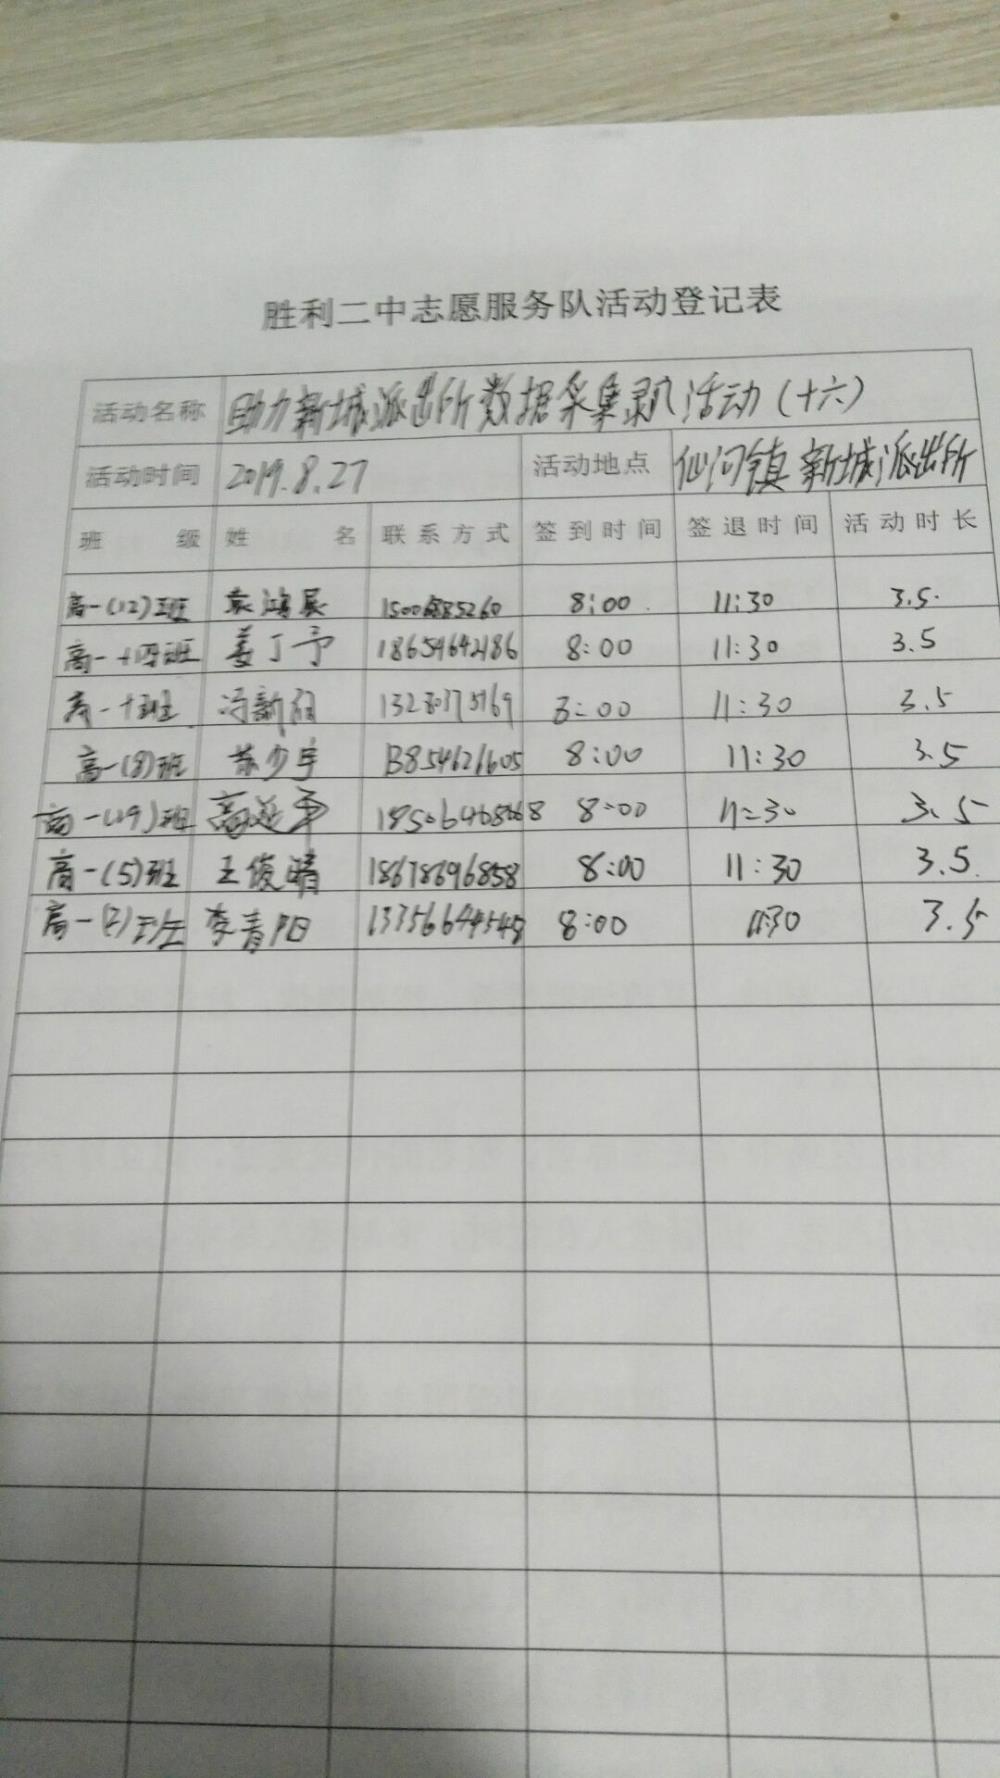 胜利二中志愿服务队活动登记表
活动名称 助力新城派出所数据采集录入活动（十六）
活动时间 2019.8.27 活动地点 仙河镇新城派出所
班级 姓名 联系方式 签到时间 签退时间 活动时长
高一(12)班 袁鸿展 8:00 11:30 3.5
高一十四班 姜丁予 18654642186 8:00 11:30 3.5
高一十班 8:00 11:30 3.5
高一(8)班 苏少宇 13854621605 8:00 11:30 3.5
高一(19)班 高延 8:00 11:30 3.5
高一(5)班 王俊晴 18678696858 8:00 11:30 3.5
高一(2)班 李青阳 13356644548 8:00 11:30 3.5